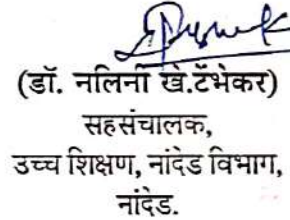 (डॉ. नलिनी खे.टेंभेकर)
सहसंचालक,
उच्च शिक्षण, नांदेड विभाग,
नांदेड.